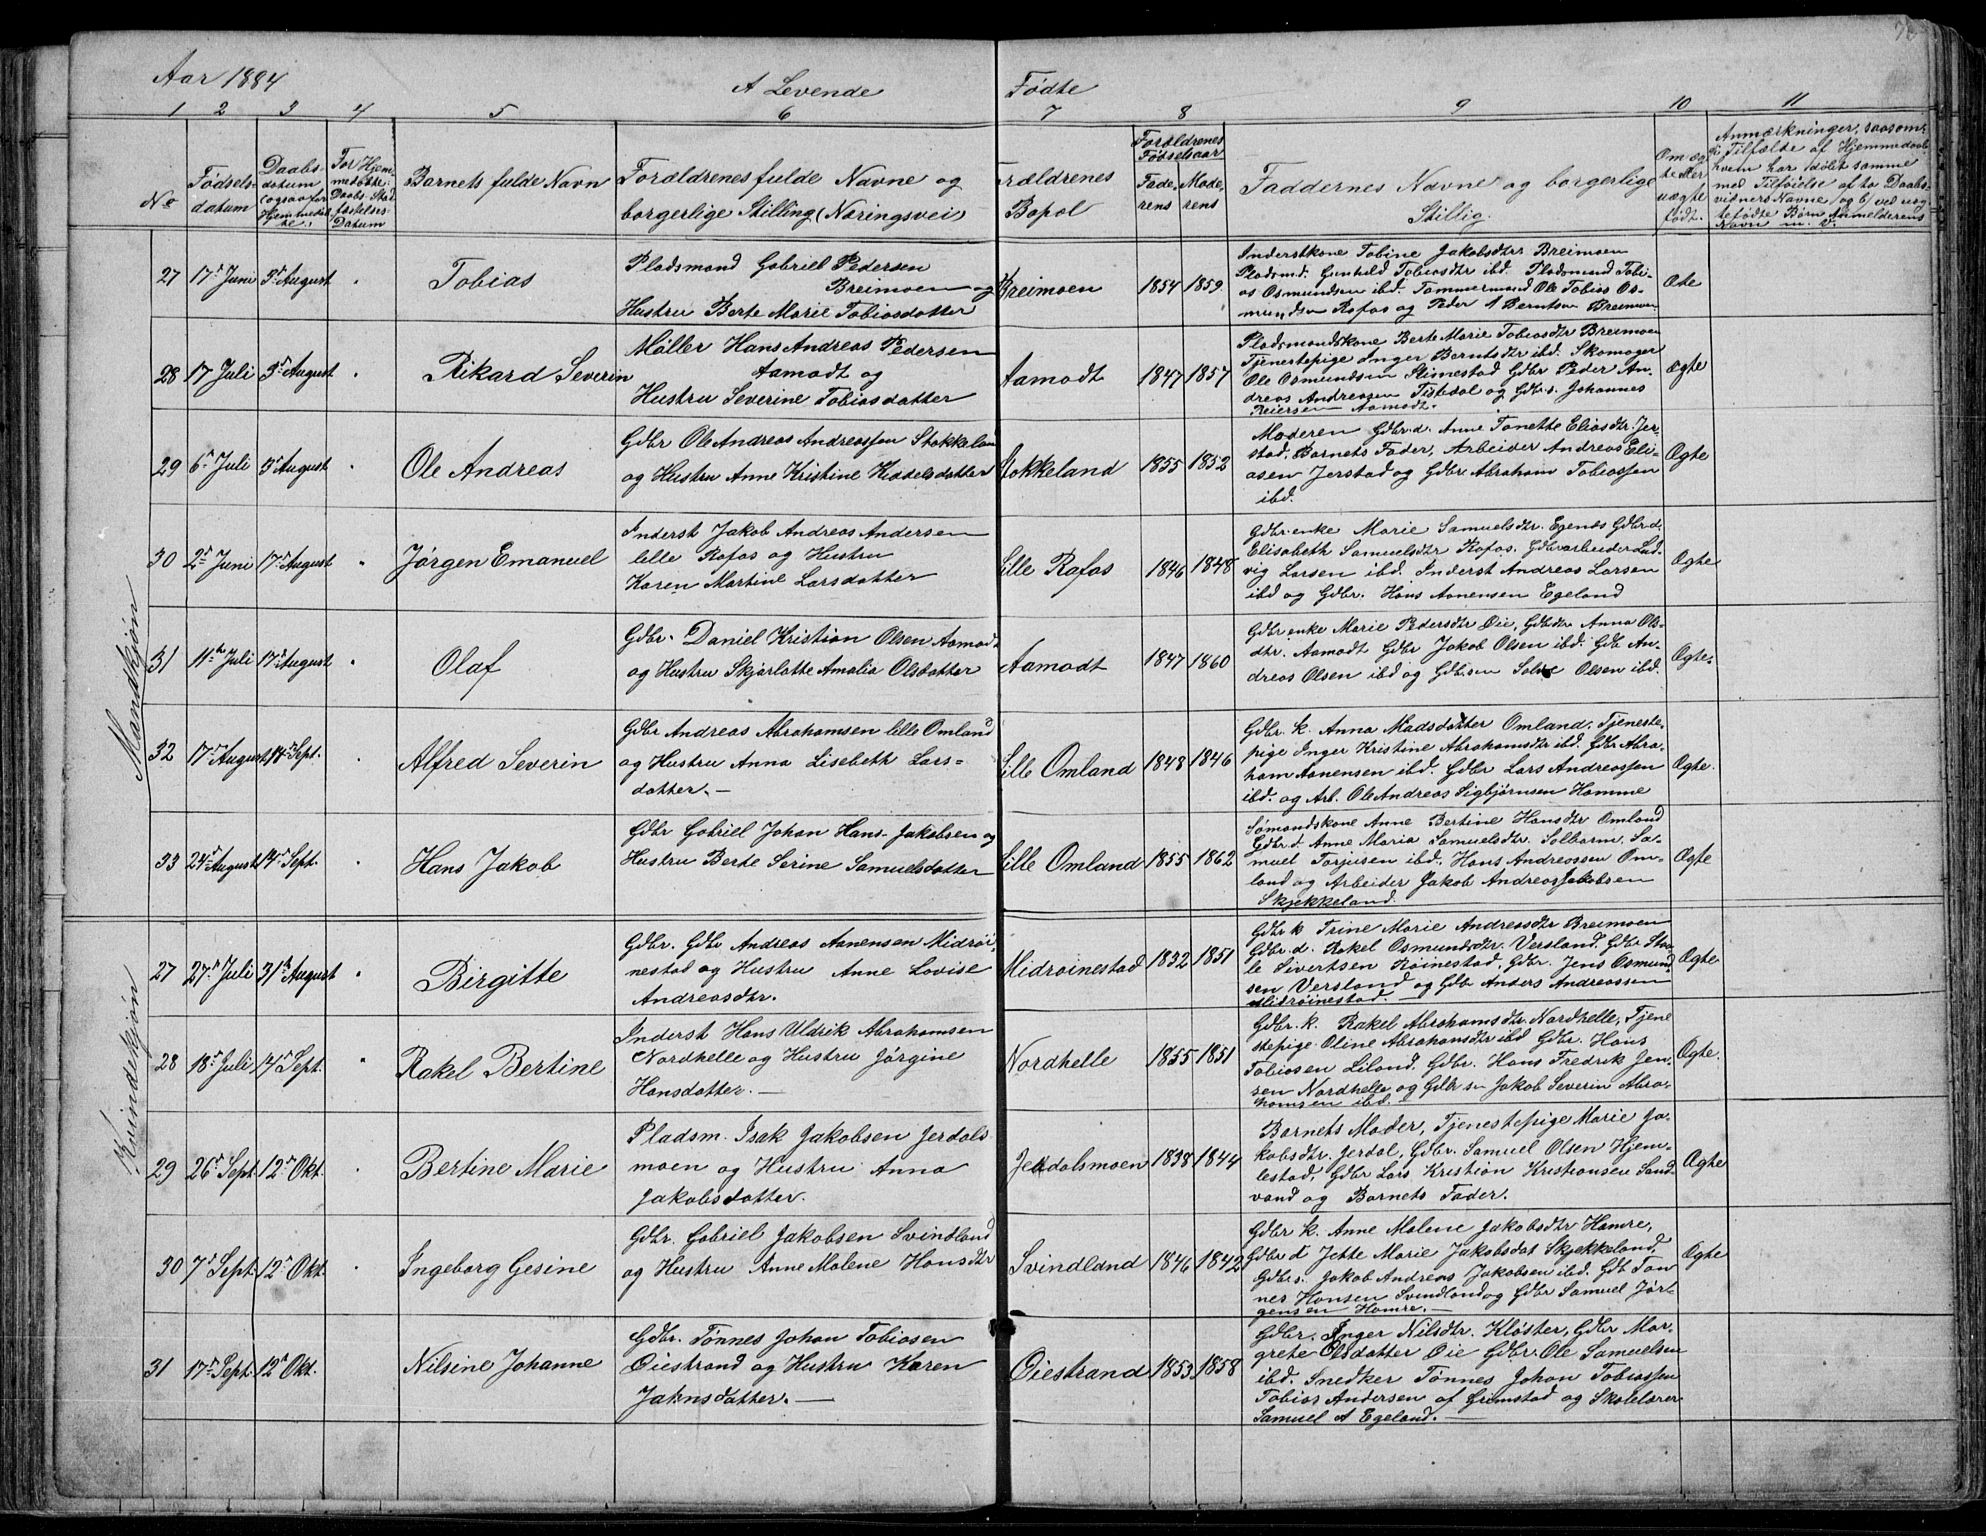 Aar 1884
A Levende Fødte
1 2 3 4 5 6 7 8 9 10 11
No
Fødsels-
datum
Daabs-
datum
(ogsaa for
Hjemmedøb-
te.)
For Hjem-
medøbte:
Daabs Stad-
fæstelses-
Datum
Barnets fulde Navn
Forældrenes fulde Navne og
borgerlige Stilling (Næringsvei)
Forældrenes
Bopæl
Forældrenes
Fødselsaar
Fade-
rens
Mode-
rens
Faddernes Navne og borgerlige
Stillig.
Om æg-
te eller
uægte
født.
Anmærkninger, saasom
i Tilfælde af Hjemmedaab
hvem har døbt samme
med Tilføielse af to Daabs-
vidners Navne, og b) ved uæg-
tefødte Børn Anmelderens
Navn m. V.
Mandkjøn
27 17de Juni 3de August
Tobias
Pladsmand Gabriel Pedersen
Breimoen og
Hustru Berte Marie Tobiasdatter
Breimoen 1854 1859
Inderstkone Tobine Jakobsdtr Breimoen
Pladsmd. Gunhild Tobiasdtr ibd. Pladsmand Tobi-
as Osmundsen ibd. Tømmermand Ole Tobias Os-
mundsen Røfos og Peder A Berntsen Breimoen
Æte
28 17 Juli 3de August
Rikard Severin
Møller Hans Andreas Pedersen
Aamodt og
Hustru Severine Tobiasdatter
Aamodt 1847 1857
Pladsmandskone Berte Marie Tobiasdtr Breimoen
Tjenestepige Inger Berntsdtr ibd. Skomager
Ole Osmundsen Stimestad Gdbr Peder An-
dreas Andreassen Tistedal og Gdbr.s. Johannes
Reiersen Aamodt.
ægte
29 6te Juli 3de August
Ole Andreas
Gdbr Ole Andreas Andreassen Stokkeland
og Hustru Anne Kristine Kiddelsdatter
Stokkeland 1855 1852
Moderen Gdbr.d. Anne Tonette Eliasdtr Jer-
stad, Barnets Fader, Arbeider Andreas Eli-
asen Jerstad og Gdbr Abraham Tobiassen
ibd.
Ægte
30 2de Juni 17de August
Jørgen Emanuel
Inderst Jakob Andreas Andersen
lille Røfos og Hustru
Karen Martine Larsdatter
Lille Røfos 1846 1848
Gdbr.enke Marie Samuelsdtr. Egenæs Gdbr.d.
Elisabeth Samuelsdtr Røfos. Gdbrarbeider Lud-
vig Larsen ibd. Inderst Andreas Larsen
ibd og Gdbr. Hans Aanensen Egeland
Ægte
31 11te Juli 17de August
Olaf
Gdbr. Daniel Kristian Olsen Aamodt
og Hustru Skjarlotte Amalia Olsdatter
Aamodt 1847 1860
Gdbr enke Marie Pedersdtr Øie, Gdbrdtr Anna Ols-
dtr. Aamodt Gdbr Jakob Olsen ibd. Gdb An-
dreas Olsen ibd og Gdbr.søn Salve Olsen ibd.
Ægte.
32 17de August 14de Sept.
Alfred Severin
Gdbr Andreas Abrahamsen lille Omland
og Hustru Anna Lisebeth Lars-
datter. —
Lille Omland 1848 1846
Gdbr. k. Anna Madsdatter Omland, Tjeneste-
pige Inger Kristine Abrahamsdtr ibd. Gdbr Abra-
ham Aanensen ibd. Gdbr Lars Andreassen
ibd. og Arb. Ole Andreas Sigbjørnsen Homme
Ægte.
33 24de August 14de Sept.
Hans Jakob
Gdbr Gabriel Johan Hans-Jakobsen og
Hustru Berte Serine Samuelsdatter
Lille Omland 1855 1862
Sømandskone Anne Bertine Hansdtr Omland
Gdbr.d Anne Maria Samuelsdtr. Solbørm, Sa-
muel Torjusen ibd. Hans Andreassen Om-
land og Arbeider Jakob Andreas Jakobsen
Skjekkeland.
Ægte
Kvindekjøn
27 27de Juli 31te August
Birgitte
Gdbr. Gdbr Andreas Aanensen Midrøi-
nestad og Hustru Anne Lovise
Andreasdtr.
Midrøinestad 1852 1851
Gdbr k Trine Marie Andreasdtr Breimoen
Gdbr.d. Rakel Osmundsdtr. Versland, Gdbr Sto-
le Sivertsen Røinestad, Gdbr. Jens Osmund-
sen Versland og Gdbr Anders Andreassen
Midrøinestad. —
Ægte
28 18de Juli 14de Sept.
Rakel Bertine
Inderst Hans Uldrik Abrahamsen
Nordhelle og Hustru Jørgine
Hansdatter. —
Nordhelle 1855 1851
Gdbr. k. Rakel Abrahamsdtr. Nordhelle, Tjene
stepige Oline Abrahamsdtr ibd Gdbr. Hans
Tobiasen Liland. Gdbr. Hans Fredrik Jen-
sen Nordhelle og Gdbr søn Jakob Severin Abra-
hamsen ibd.
Ægte.
29 26de Sept. 12de Okt.
Bertine Marie
Pladsm. Isak Jakobsen Jerdals-
moen og Hustru Anna
Jakobsdatter.
Jerdalsmoen 1838 1844
Barnets Moder, Tjenestepige Marie Ja-
kobsdtr. Jerdal, Gdbr. Samuel Olsen Hjem-
lestad, Gdbr Lars Kristian Kristiansen Sand-
vand og Barnets Fader.
Ægte
30 7de Sept. 12te Okt.
Ingeborg Gesine
Gdbr. Gabriel Jakobsen Svindland
og Hustru Anne Malene Hansdtr
Svindland 1846 1842
Gdbr k. Anne Malene Jakobsdtr Homre,
Gdbr d Jette Marie Jakobsdat Skjekkeland
Gdbr s. Jakob Andreas Jakobsen ibd. Gdb Tøn-
nes Hansen Svindland og Gdbr Samuel Jør-
gensen Homre. —
Ægte
31 17de Sept. 12te Okt.
Nilsine Johanne
Gdbr. Tønnes Johan Tobiasen
Øiestrand og Hustru Karen
Jahnsdatter. —
Øiestrand 1853 1858
Gdbr. Inger Nilsdtr. Kloster, Gdbr Mar-
grete Olsdatter Øie Gdbr. Ole Samuelsen
ibd. Snedker Tønnes Johan Tobiassen
Tobias Andersen af Grimstad og Skolelærer
Samuel A Egeland. —